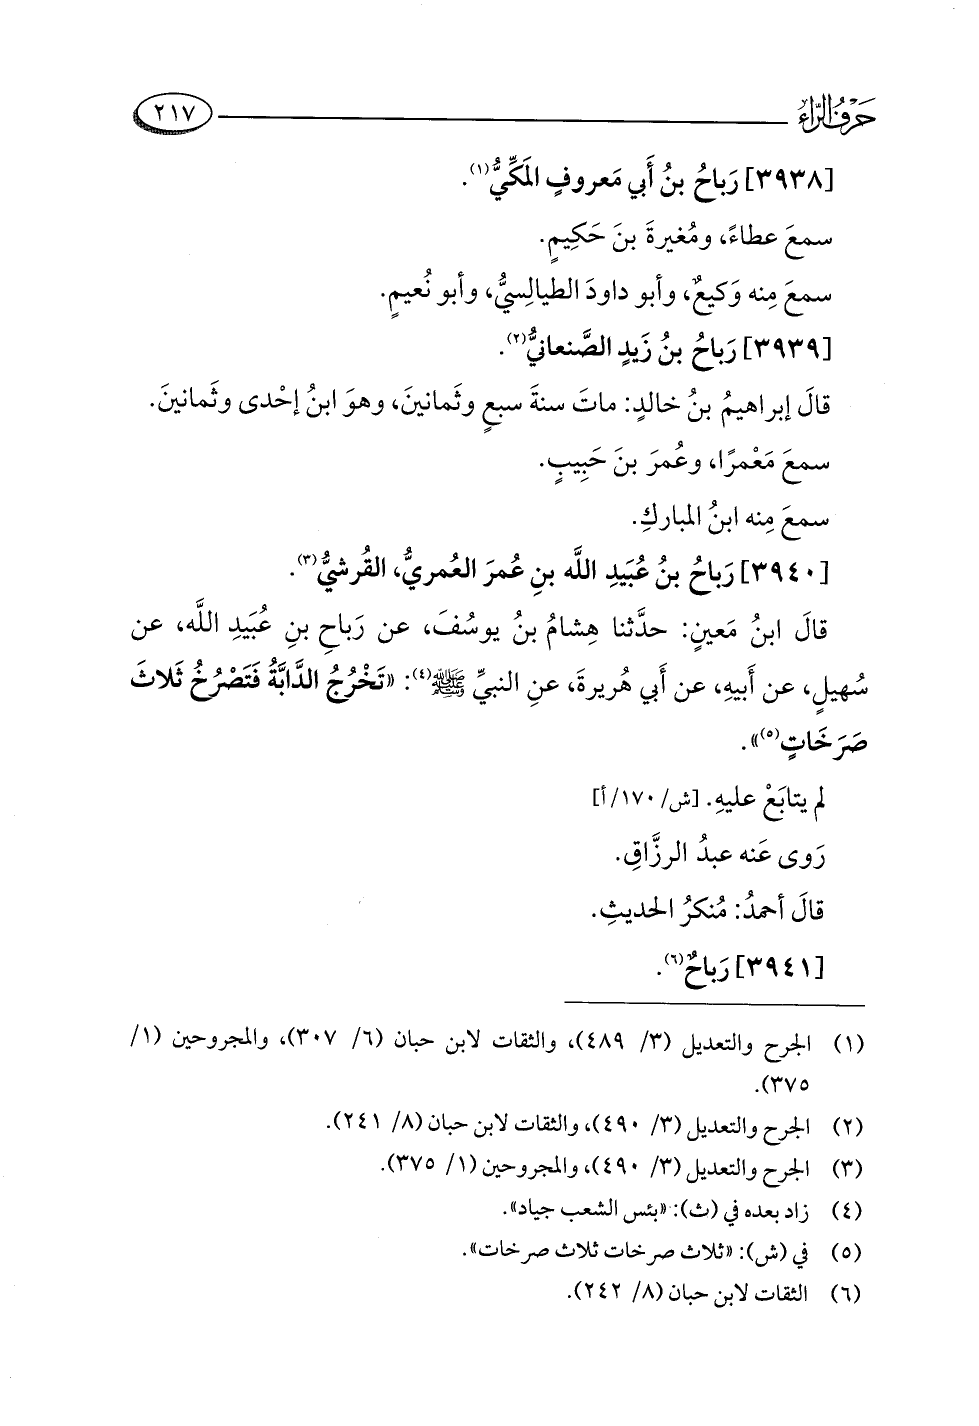 حَرْفُ الرَّاءِ
٢١٧
[٣٩٣٨] رَباحُ بنُ أَبي مَعروفٍ المَكِّيُّ(١).
سمعَ عطاءً، ومُغيرةَ بنَ حَكِيمٍ.
سمعَ مِنه وَكيعٌ، وأبو داودَ الطيالِسيُّ، وأبو نُعيمٍ.
[٣٩٣٩] رَباحُ بنُ زَيدٍ الصَّنعانيُّ(٢).
قالَ إبراهيمُ بنُ خالدٍ: ماتَ سنةَ سبعٍ وثَمانينَ، وهوَ ابنُ إحْدى وثَمانينَ.
سمعَ مَعْمرًا، وعُمرَ بنَ حَبِيبٍ.
سمعَ مِنه ابنُ المباركِ.
[٣٩٤٠] رَباحُ بنُ عُبَيدِ اللَّه بنِ عُمرَ العُمريُّ، القُرشيُّ(٣).
قالَ ابنُ مَعينٍ: حدَّثنا هِشامُ بنُ يوسُفَ، عن رَباحِ بنِ عُبَيدِ اللَّه، عن
سُهيلٍ، عن أَبيهِ، عن أَبي هُريرةَ، عنِ النبيِّ ﷺ(٤): «تَخْرُجُ الدَّابَّةُ فَتَصْرُخُ ثَلاثَ
صَرَخَاتٍ(٥)».
لم يتابَعْ عليهِ. [ش/١٧٠/أ]
رَوى عَنه عبدُ الرزَّاقِ.
قالَ أحمدُ: مُنكرُ الحديثِ.
[٣٩٤١] رَباحٌ(٦).
(١) الجرح والتعديل (٣/ ٤٨٩)، والثقات لابن حبان (٦/ ٣٠٧)، والمجروحين (١/
٣٧٥).
(٢) الجرح والتعديل (٣/ ٤٩٠)، والثقات لابن حبان (٨/ ٢٤١).
(٣) الجرح والتعديل (٣/ ٤٩٠)، والمجروحين (١/ ٣٧٥).
(٤) زاد بعده في (ث): «بئس الشعب جياد».
(٥) في (ش): «ثلاث صرخات ثلاث صرخات».
(٦) الثقات لابن حبان (٨/ ٢٤٢).